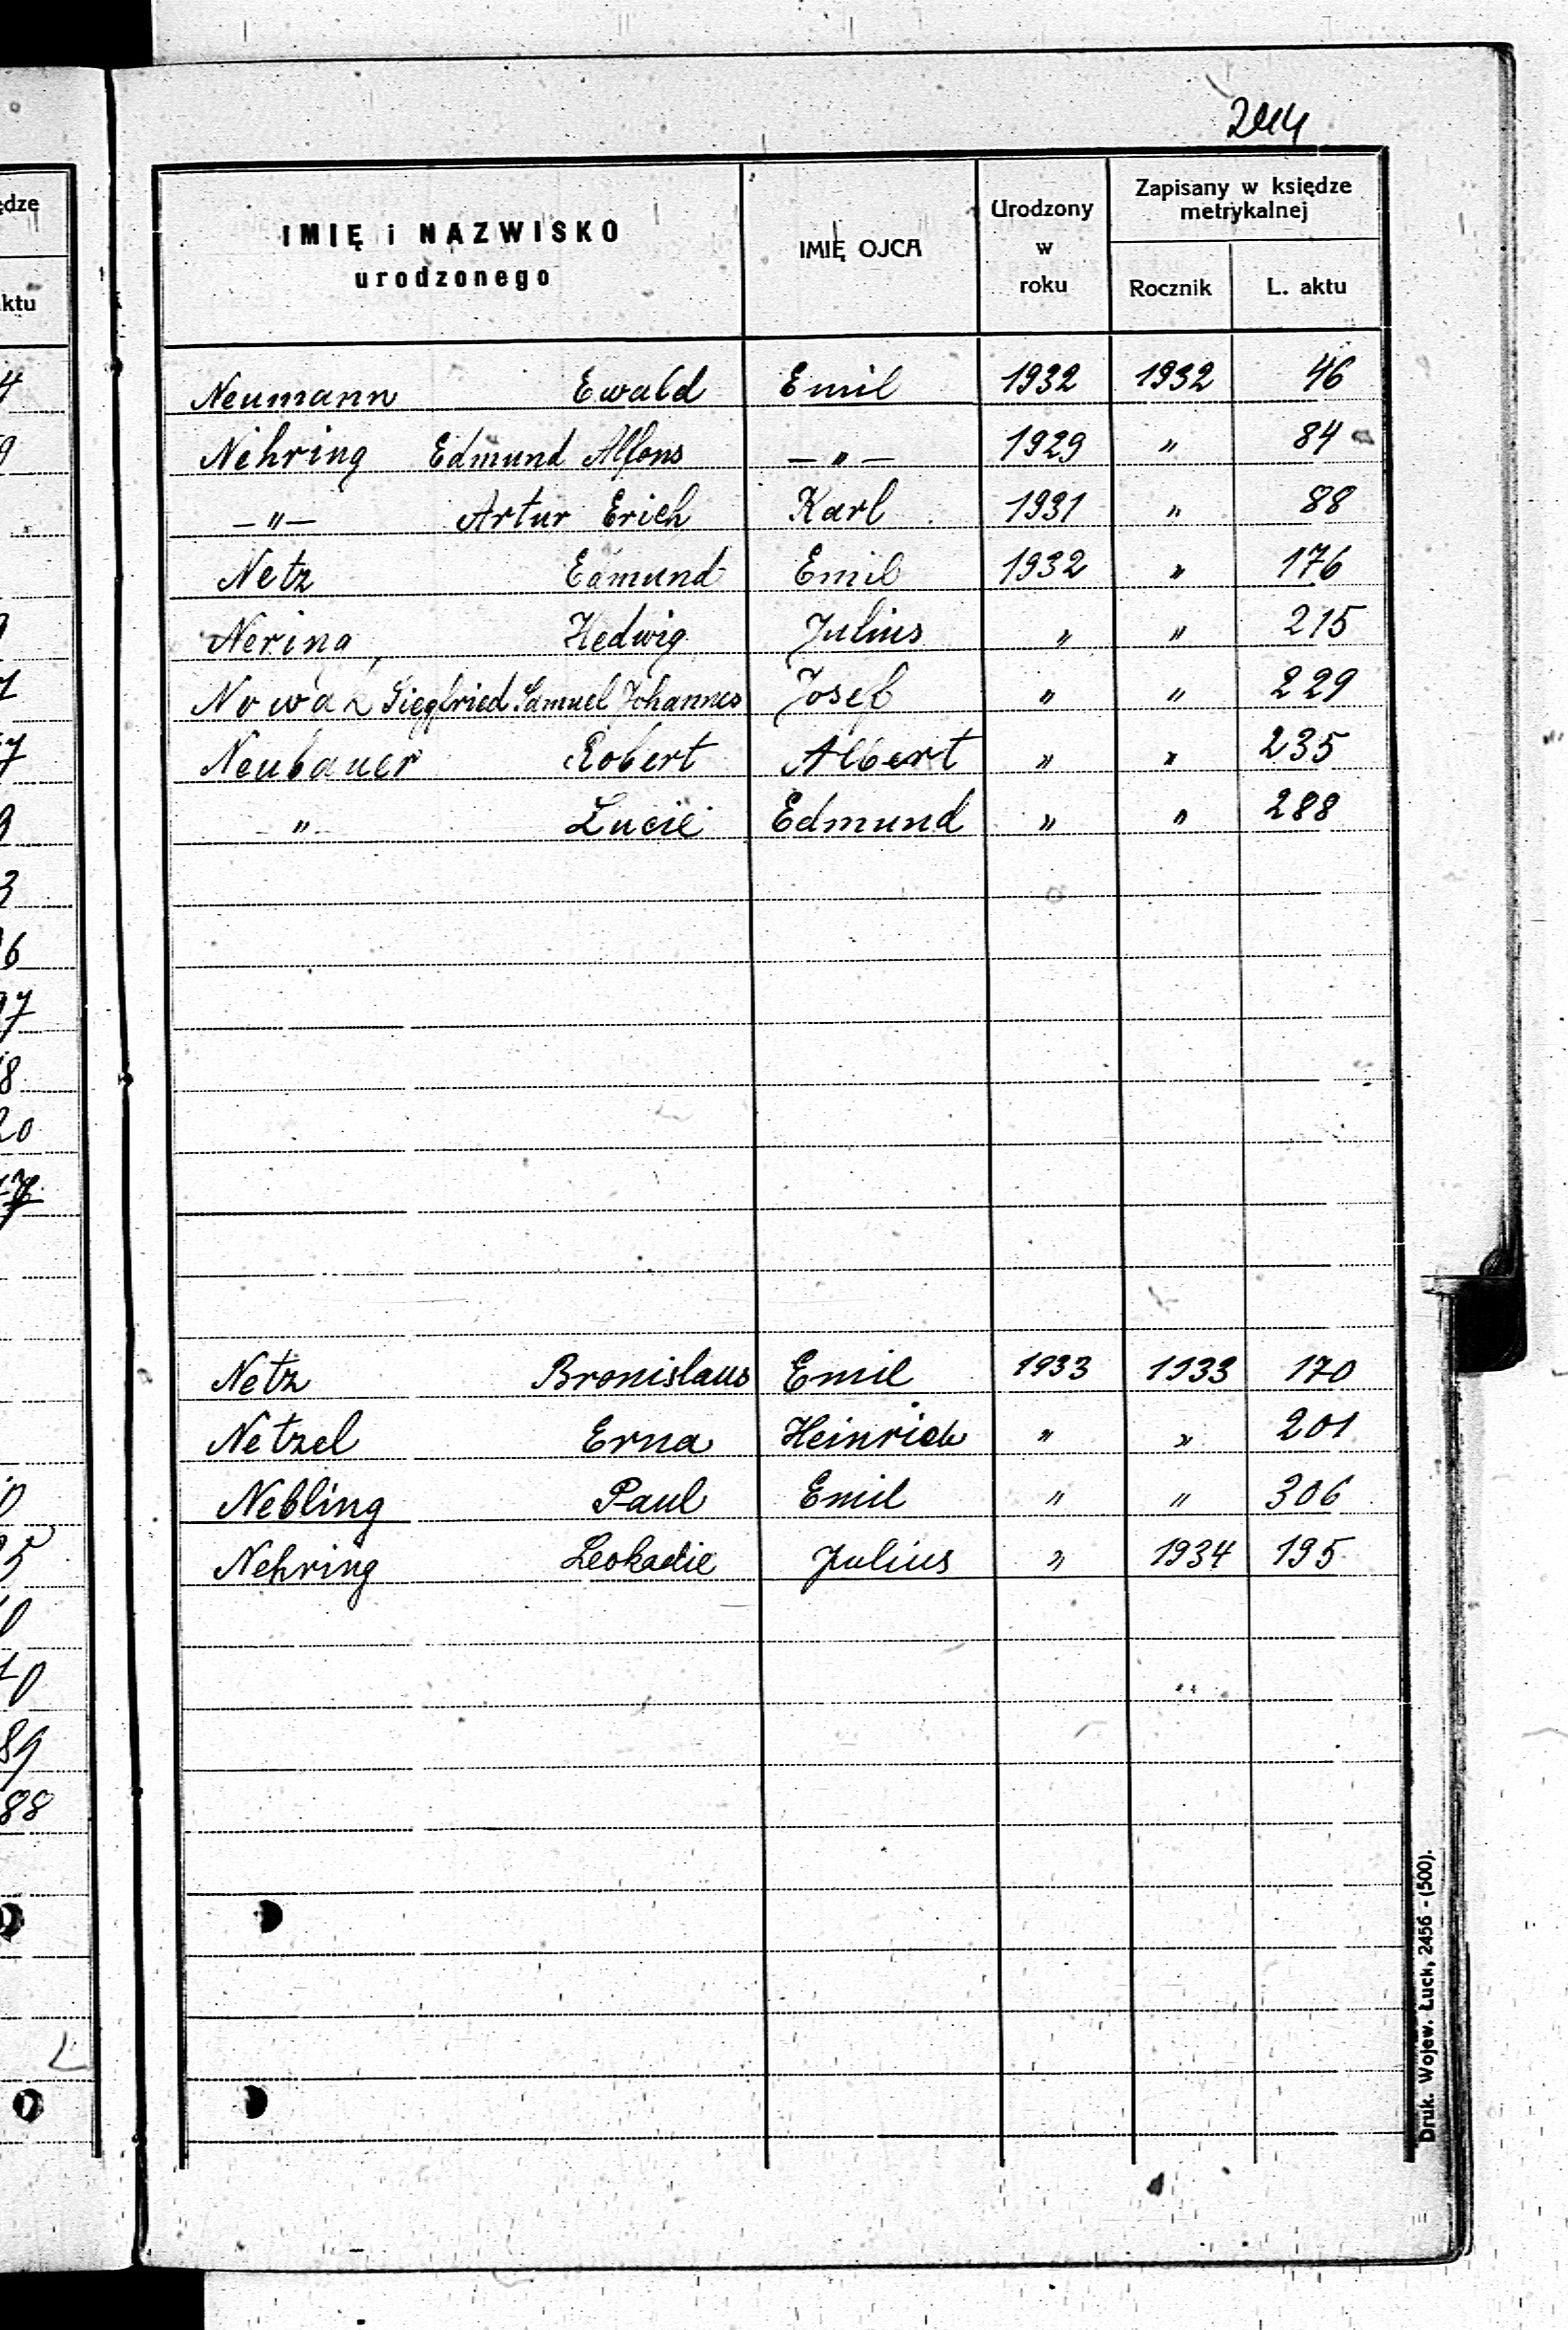 244
IMIĘ i NAZWISKO
urodzonego
IMIĘ OJCA
Urodzony
w
roku
Zapisany w księdze
metrykalnej
Rocznik
L. aktu
Neumann Ewald Emil 1932 1932 46
Nehring Edmund Alfons — " — 1929 " 84
— " — Artur Erich Karl 1931 " 88
Netz Edmund Emil 1932 " 176
Hedwig Julius " " 215
Siegfried Samuel Johannes Josef " " 229
Neubauer Robert Albert " " 235
" Lucie Edmund " " 288
Netz Bronislaus Emil 1933 1933 170
Netzel Erna Heinrich " " 201
Nebling Paul Emil " " 306
Nehring Leokadie Julius " 1934 195
Druk. Wojew. Łuck, 2456 - (500).